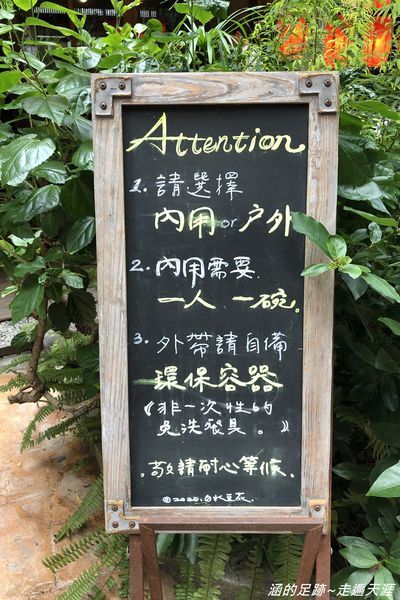 Attention
1. 請選擇
內用 or 户外
2. 內用需要
一人 一碗。
3. 外帶請自備
環保容器
《非一次性的
免洗餐具。》
敬請耐心等候.
©2020.白水豆花.
涵的足跡~走遍天涯